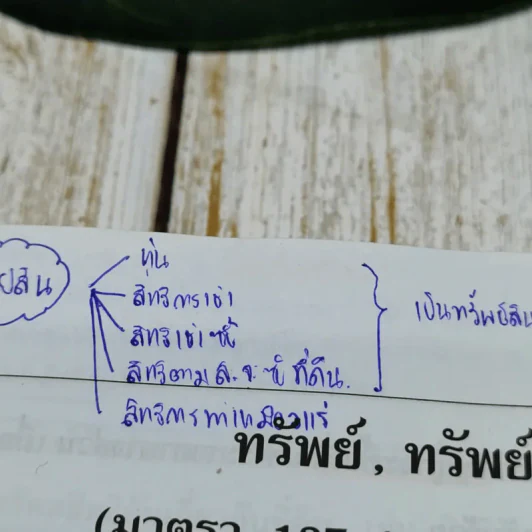 ยสิน
หุ้น
สิทธิการเช่า
สิทธิเช่าซื้อ
สิทธิตาม ส.จ.ซื้อ ที่ดิน.
สิทธิการทำเหมืองแร่
เป็นทรัพย์สิน
ทรัพย์, ทรัพย์
(มาตรา